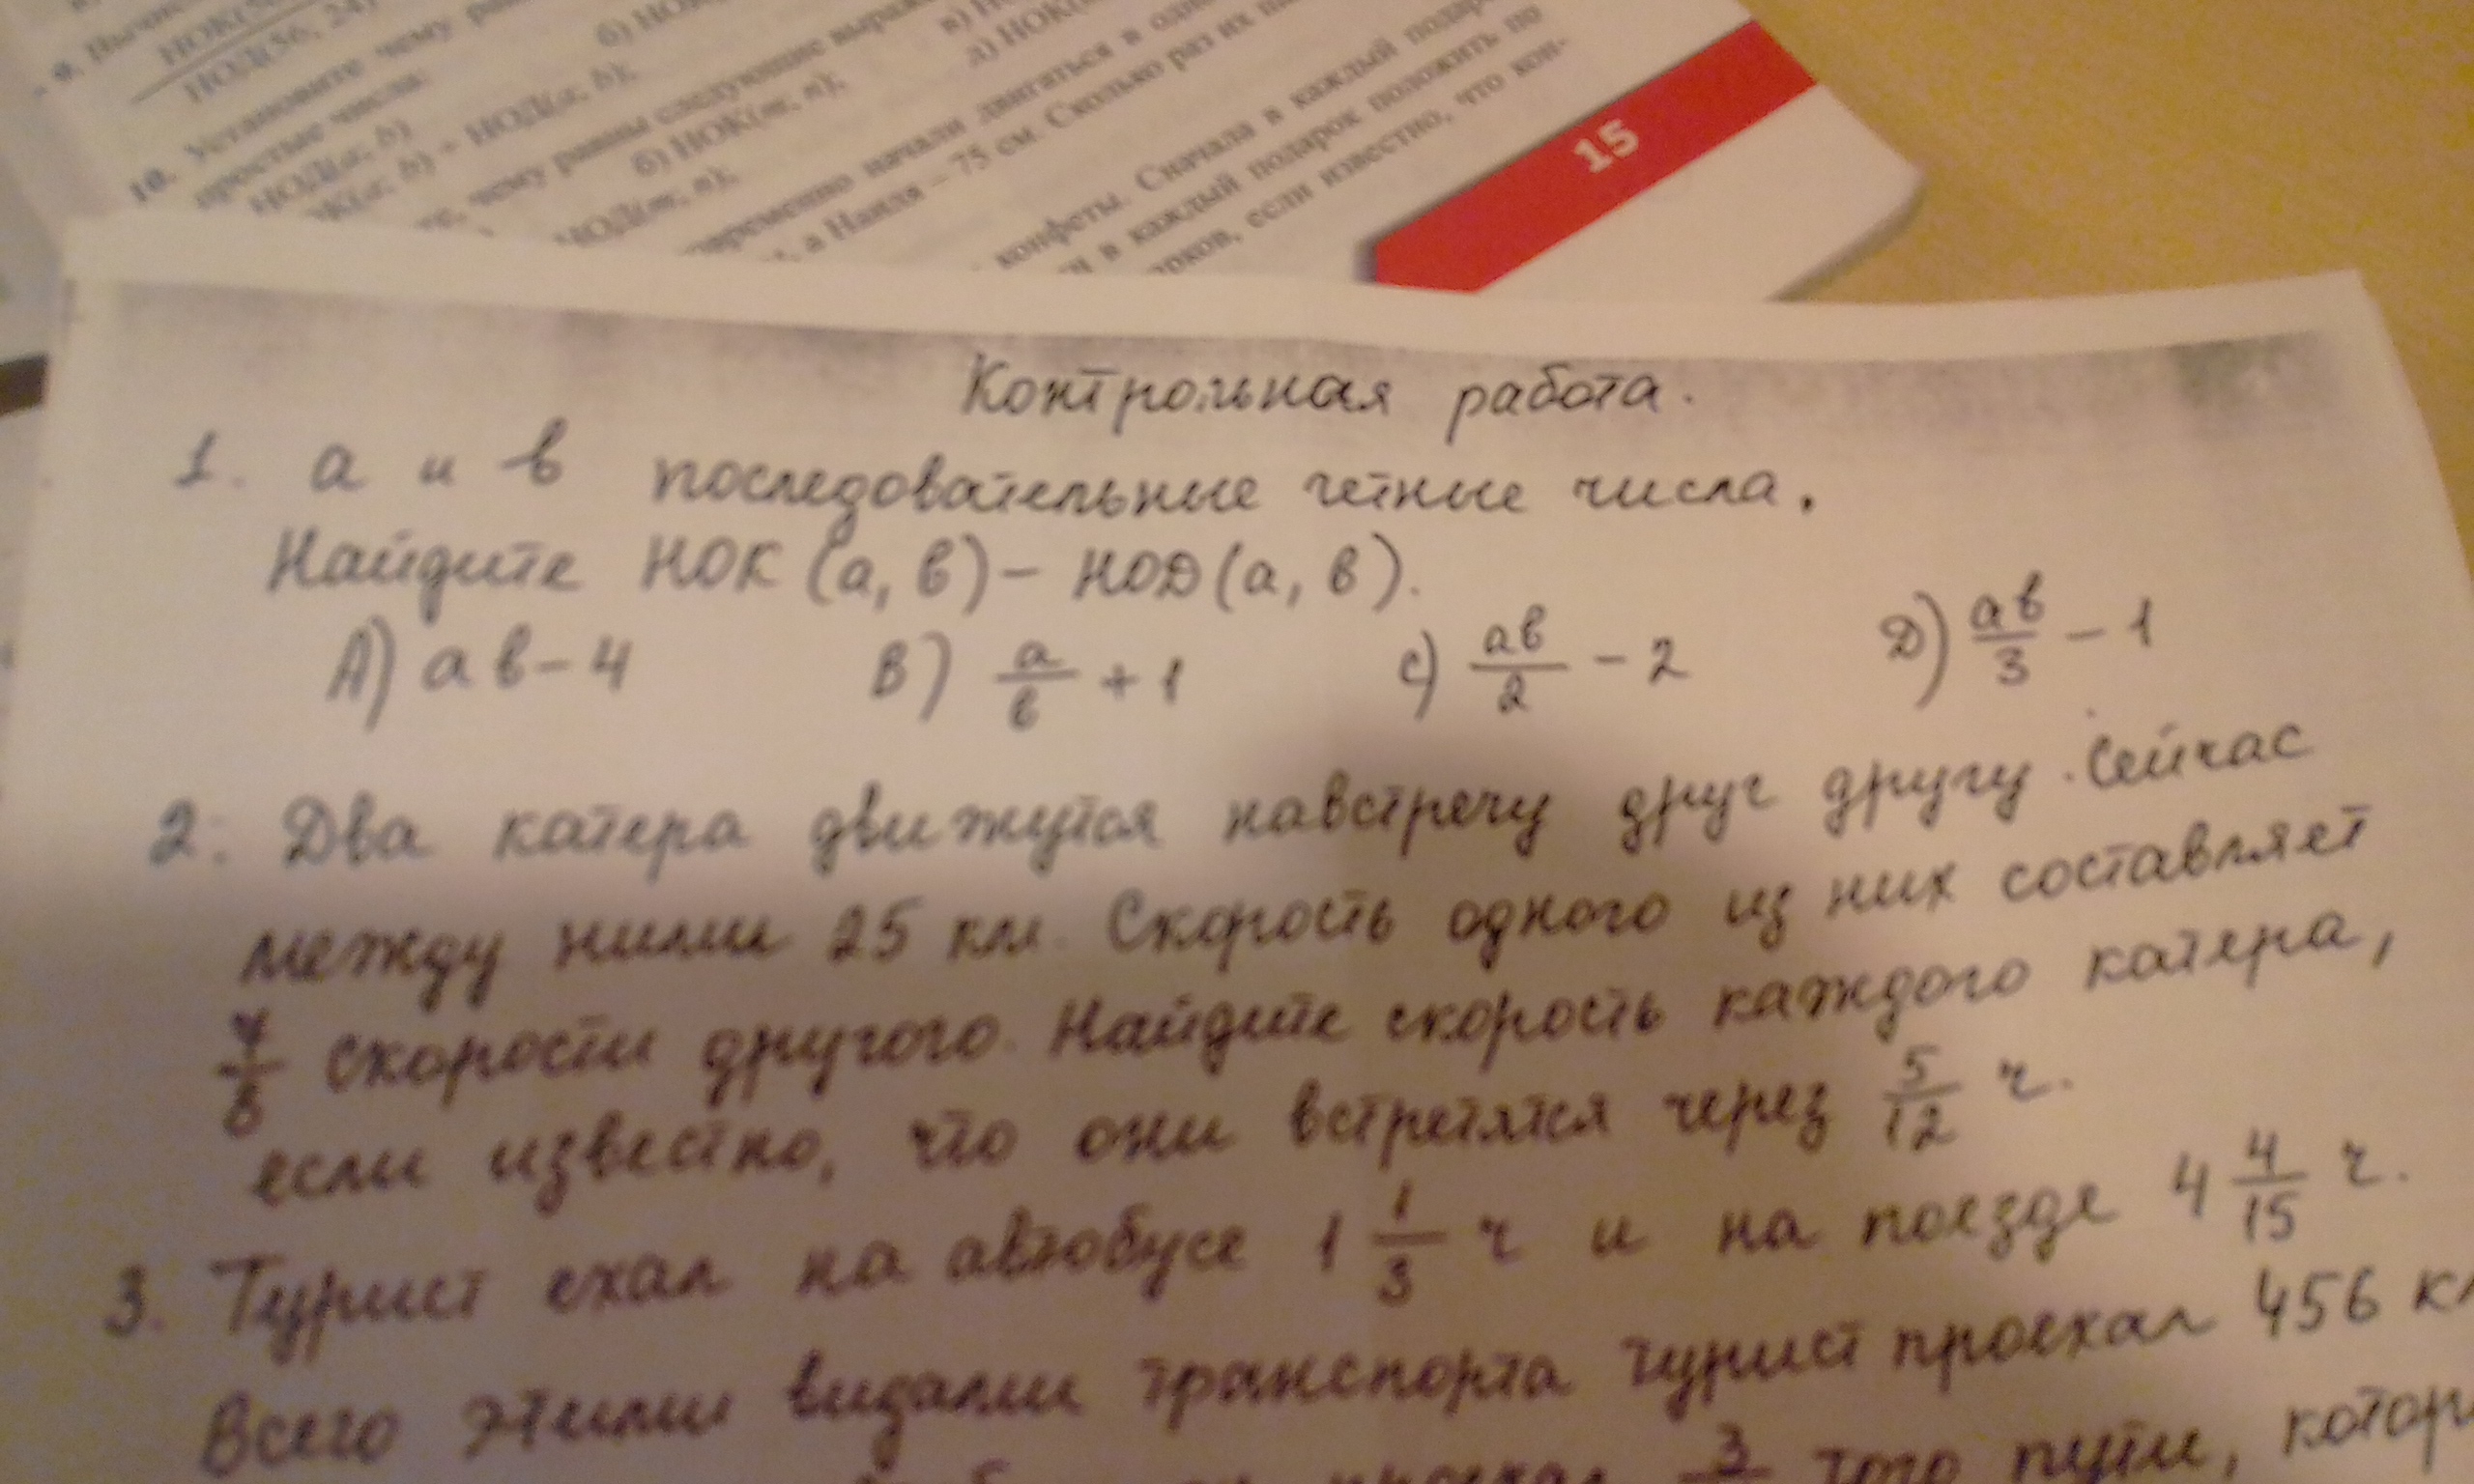 НОД(56, 24)
10. Установите чему
простые числа:
НОД(a, b)
б) НОК
в) НОК
НОД(a, b);
чему равны следующие
б) НОК(m, n);
НОД(m, n);
начали двигаться в
а Наиля – 75 см. Сколько раз их
конфеты. Сначала в каждый
в каждый подарок положить по
если известно, что кон-
15
Контрольная работа.
1. a и в последовательные четные числа.
Найдите НОК (a, в) – НОД (a, в).
A) aв – 4 B) a/в + 1 C) aв/2 – 2 Д) aв/3 – 1
2. Два катера движутся навстречу друг другу. Сейчас
между ними 25 км. Скорость одного из них составляет
скорости другого. Найдите скорость каждого катера,
если известно, что они встретятся через 5/12 ч.
3. Турист ехал на автобусе 1 1/3 ч и на поезде 4 4/15 ч.
Всего этими видами транспорта турист проехал 456 к
проехал 3 того пути, котор